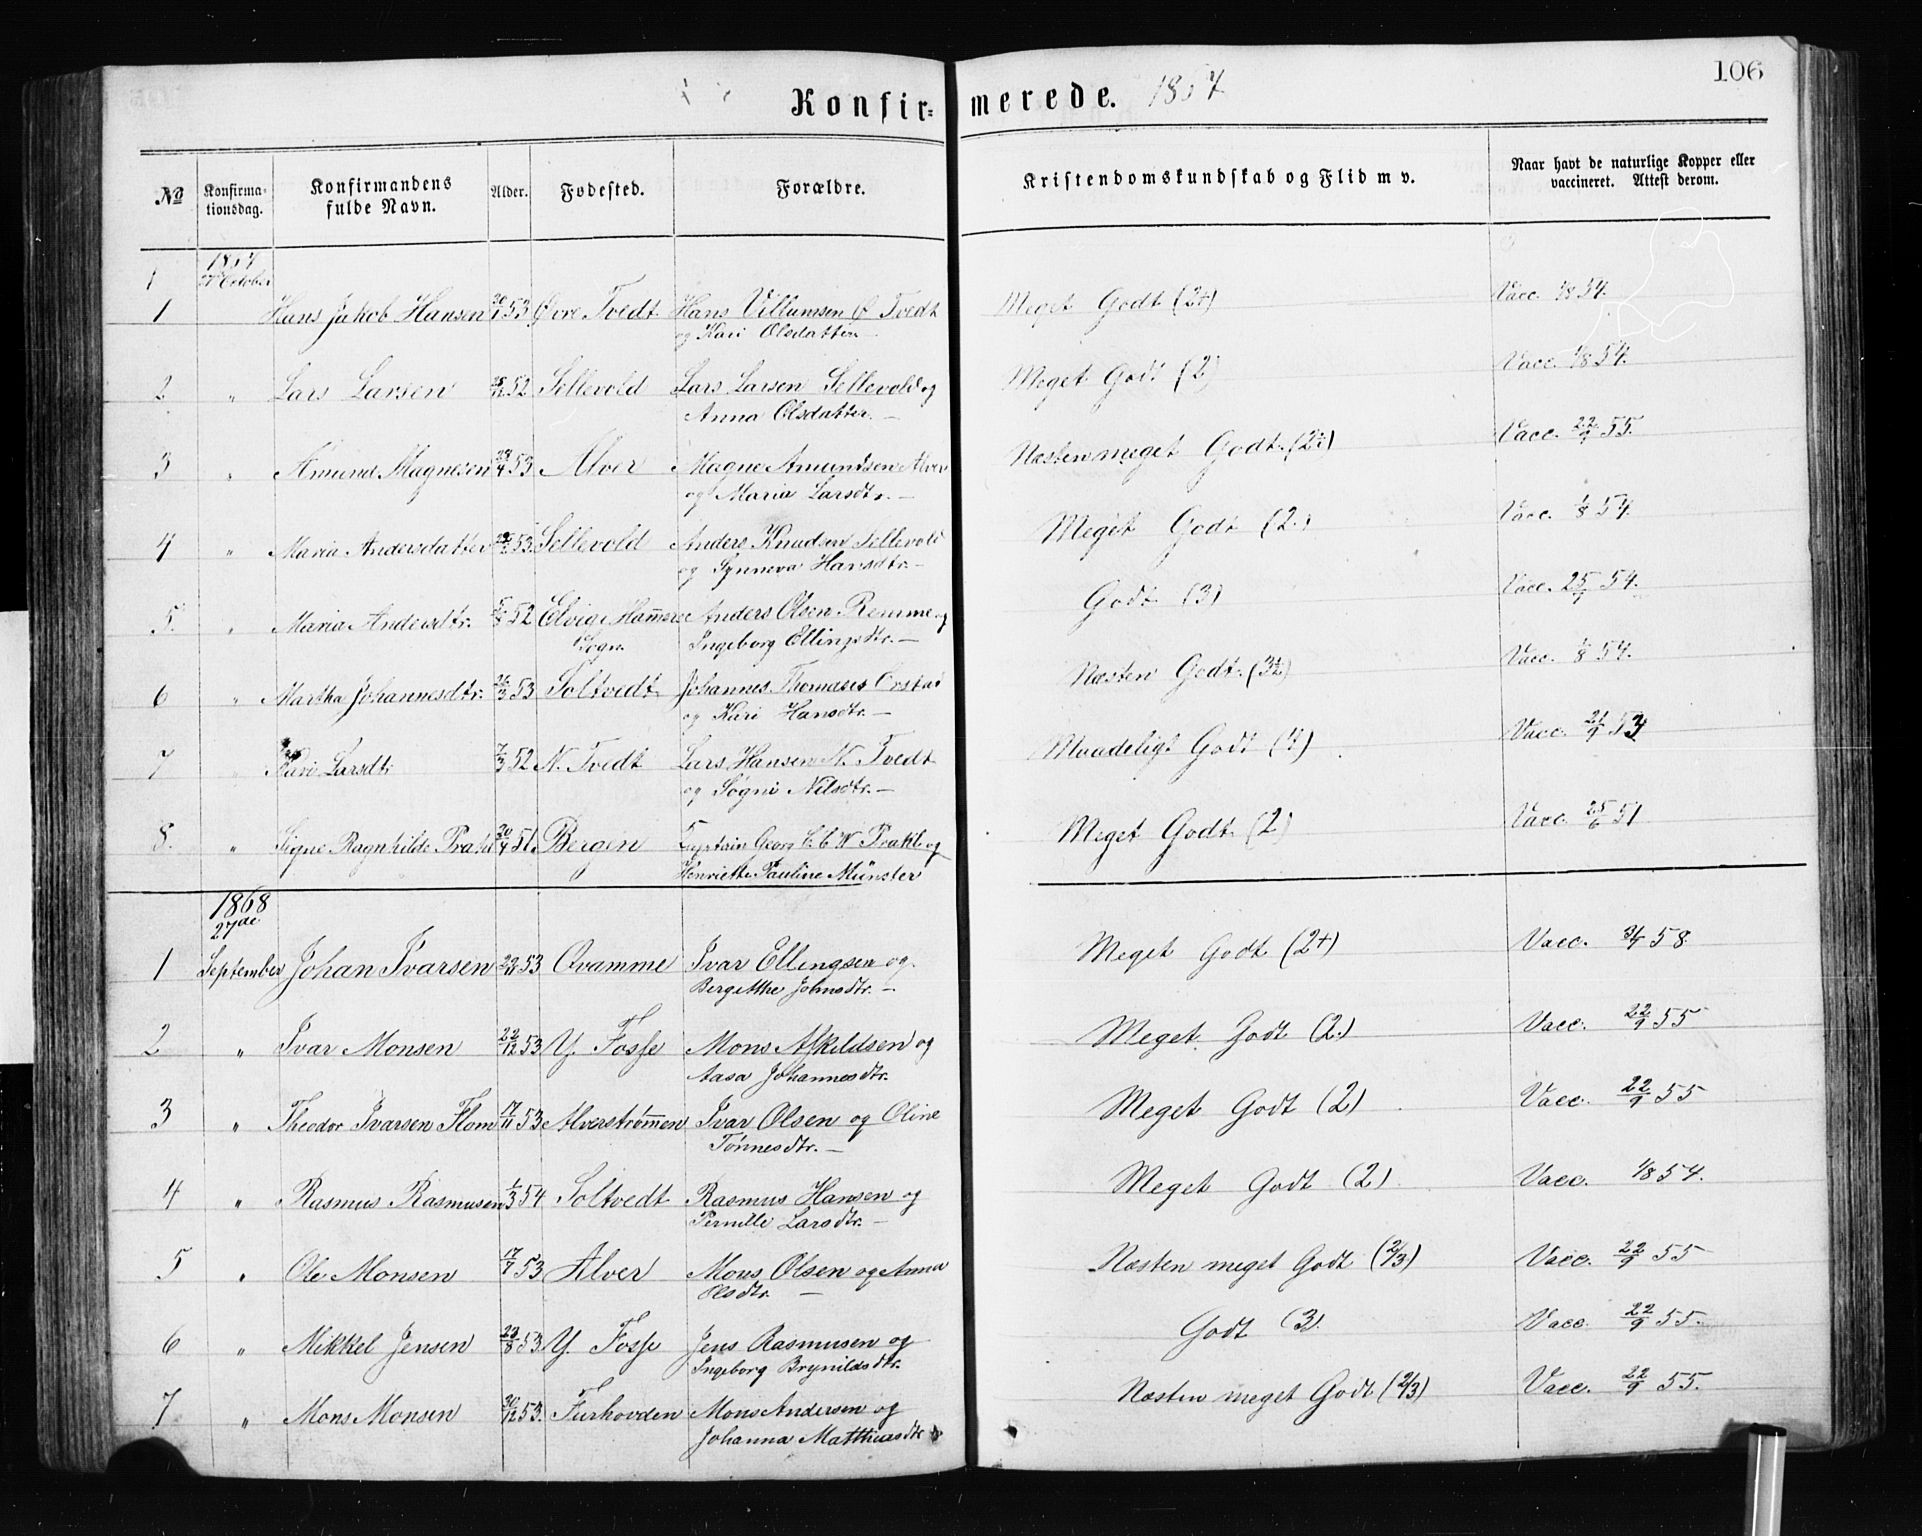 106
Konfirmerede. 1867
No Konfirmationsdag. Konfirmandens fulde Navn. Alder. Fødested. Forældre. Kristendomskundskab og Flid m v. Naar havt de naturlige Kopper eller vaccineret. Attest derom.
1867
October
1 Hans Jakob Hansen 53 Øvre Tvedt Hans Villumsen Ø Tvedt Meget Godt (2+) Vacc. 1/8 54.
og Kari Olsdatter —
2 " Lars Larsen 52 Sellevold Lars Larsen Sellevold og Meget Godt (2) Vacc. 1/8 54.
Anna Olsdatter. —
3 " Amund Magnesen 53 Alver Magne Amundsen Alver Næsten meget Godt. Vacc. 22/9 55.
og Maria Larsdtr. —
4 " Maria Andersdatter 53. Sellevold Anders Knudsen Sellevold Meget Godt (2.) Vacc. 1/8 54.
og Synneva Hansdtr. —
5. " Maria Andersdtr. 52 Elvig Hammers Anders Olsen Remme og Godt (3) Vacc. 25/9 54.
Sogn. Ingeborg Ellingsdtr. —
6 " Martha Johannesdtr. 26/3 53 Soltvedt Johannes Thomases Næsten Godt. Vacc. 1/8 54.
og Kari Hansdtr. —
7 " Kari Larsdtr 7/3 52 N. Tvedt Lars Hansen N. Tvedt Maadeligt Godt (4) Vacc. 21/9 53
og Søgni Nilsdtr. —
8. " Signe Ragnhilde Prahl 20/4 51. Bergen Captain Georg C. C. W. Prahl og Meget Godt (2) Vacc. 25/6 51
Henriette Pauline Münster
1868
27de
1 September Johan Ivarsen 53 Qvamme Ivar Ellingsen og Meget Godt (2+) Vacc. 58.
Bergitthe Johnsdtr. —
2 " Ivar Monsen 22/12 53 Y. Fosse Mons Askildsen og Meget Godt (2.) Vacc. 22/9 55
Aasa Johannesdtr.
3 " Theodor Ivarsen Flom 17/11 53 Alverstrømmen Ivar Olsen og Oline Meget Godt (2) Vacc. 22/9 55
Tønnesdtr. —
4 " Rasmus Rasmusen 1/3 54 Soltvedt Rasmus Hansen og Meget Godt (2) Vacc. 1/8 54.
Pernille Larsdtr. —
5 " Ole Monsen 17/7 53 Alver Mons Olsen og Anna Næsten meget Godt (2/3) Vacc. 22/9 55
Olsdtr. —
6 " Mikkel Jensen 23/8 53 Y. Fosse Jens Rasmusen og Godt (3) Vacc. 22/9 55.
Ingeborg Brynildsdtr.
7 " Mons Monsen 30/12 53. Furhovden Mons Andersen og Næsten meget Godt (2/3) Vacc. 22/9 55.
Johanna Matthiasdtr